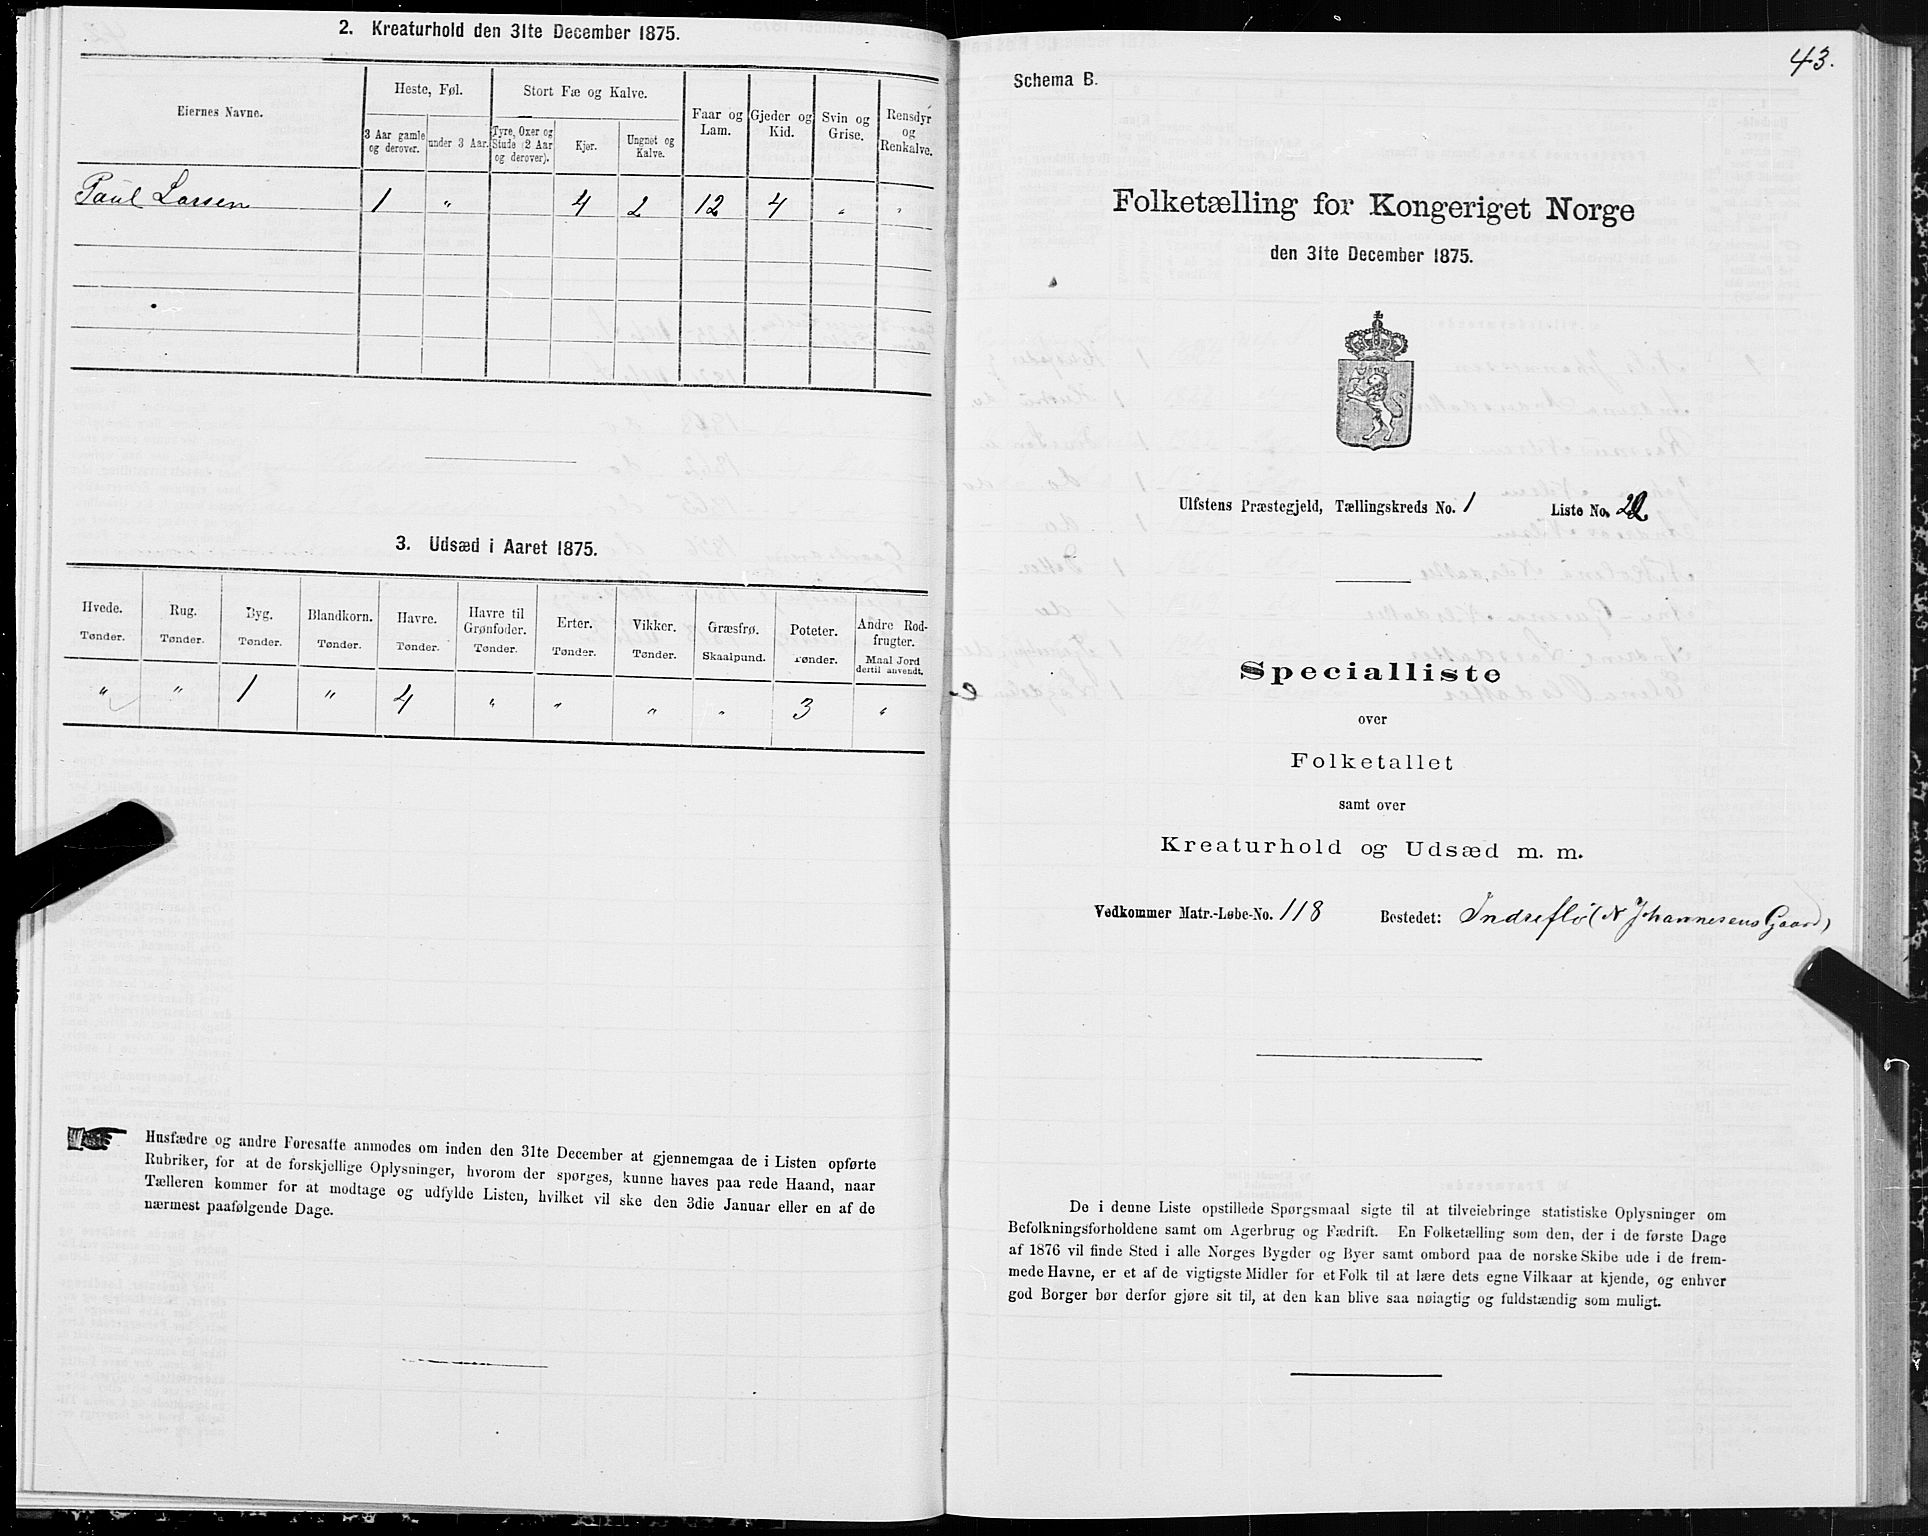 2. Kreaturhold den 31te December 1875.
Eiernes Navne.
Heste, Føl.
Stort Fæ og Kalve.
Faar og Lam.
Gjeder og Kid.
Svin og Grise.
Rensdyr og Renkalve.
3 Aar gamle og derover.
under 3 Aar.
Tyre, Oxer og Stude (2 Aar og derover).
Kjør.
Ungnøt og Kalve.
Paul Larsen 1 " 4 2 12 4 " "
3. Udsæd i Aaret 1875.
Hvede. Rug. Byg. Blandkorn. Havre. Havre til Grønfoder. Erter. Vikker. Græsfrø. Poteter. Andre Rodfrugter.
Tønder. Tønder. Tønder. Tønder. Tønder. Tønder. Tønder. Tønder. Skaalpund. Tønder. Maal Jord dertil anvendt.
" " 1 " 4 " " " " 3 "
Husfædre og andre Foresatte anmodes om inden den 31te December at gjennemgaa de i Listen opførte
Rubriker, for at de forskjellige Oplysninger, hvorom der spørges, kunne haves paa rede Haand, naar
Tælleren kommer for at modtage og udfylde Listen, hvilket vil ske den 3die Januar eller en af de
nærmest paafølgende Dage.
43.
Schema B.
Folketælling for Kongeriget Norge
den 31te December 1875.
Ulfstens Præstegjeld, Tællingskreds No. 1 Liste No. 22
Specialliste
over
Folketallet
samt over
Kreaturhold og Udsæd m. m.
Vedkommer Matr.-Løbe-No. 118 Bostedet: Indreflø (N Johannesens Gaard)
De i denne Liste opstillede Spørgsmaal sigte til at tilveiebringe statistiske Oplysninger om
Befolkningsforholdene samt om Agerbrug og Fædrift. En Folketælling som den, der i de første Dage
af 1876 vil finde Sted i alle Norges Bygder og Byer samt ombord paa de norske Skibe ude i de frem-
mede Havne, er et af de vigtigste Midler for et Folk til at lære dets egne Vilkaar at kjende, og enhver
god Borger bør derfor gjøre sit til, at den kan blive saa nøiagtig og fuldstændig som muligt.